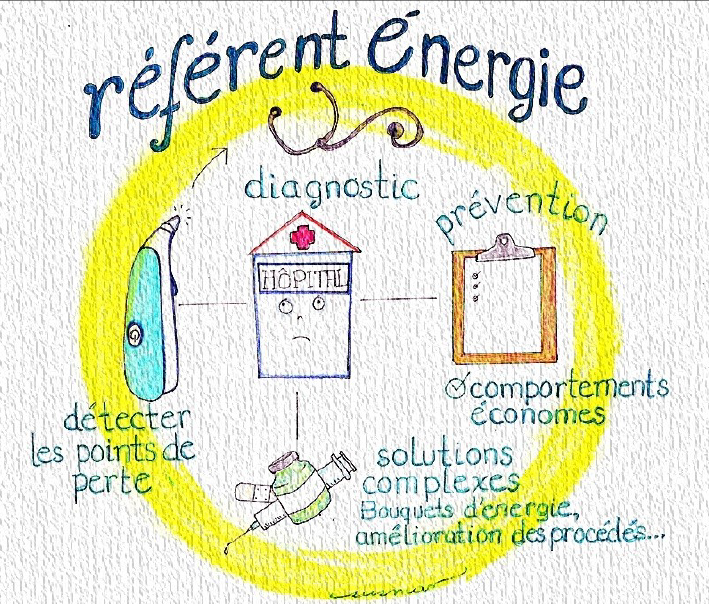 référent énergie
diagnostic
prévention
HÔPITAL
comportements
économes
détecter
les points de
perte
solutions
complexes
Bouquets d'énergie,
amélioration des procédés...